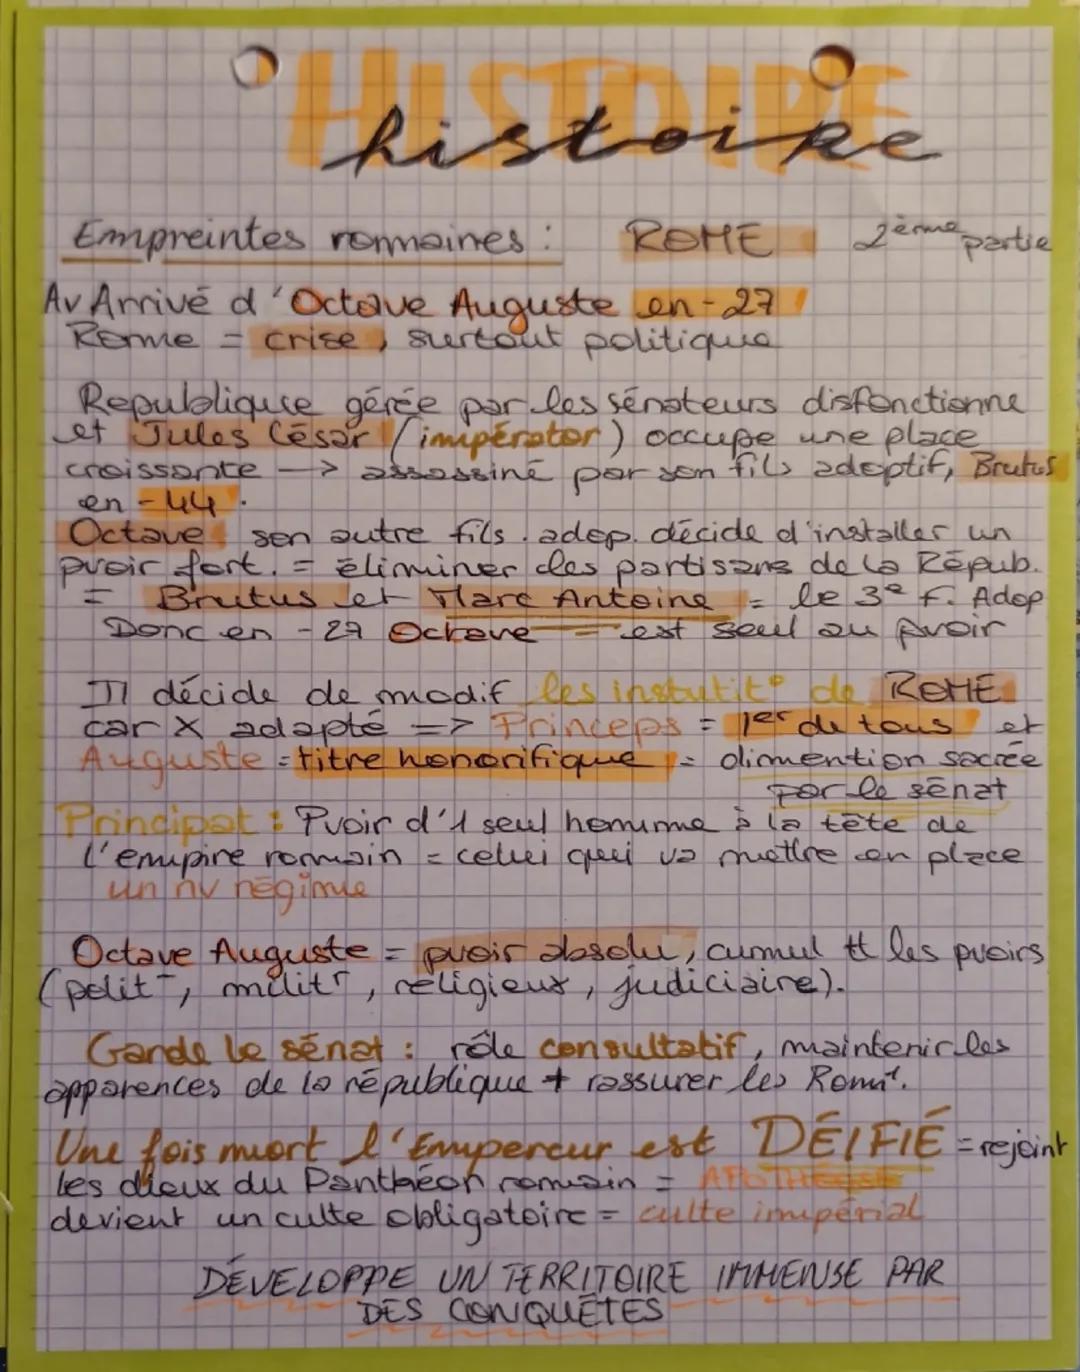 HISTOIRE
histoire
Empreintes romaines : ROME 2ème partie
Av Arrivé d'Octave Auguste en -27
Rome = crise, surtout politique
Republique gérée par les sénateurs disfonctionne
et Jules César (impérator) occupe une place
croissante → assassiné par son fils adoptif, Brutus
en -44.
Octave son autre fils. adop. décide d'installer un
pvoir fort. = éliminer les partisans de la Répub.
= Brutus et Marc Antoine = le 3e f. Adop
Donc en -27 Octave = est seul au pvoir
Il décide de modif les instutit° de ROME
car X adapté => Princeps = 1er de tous et
Auguste = titre honorifique = dimention sacrée
par le sénat
Principat : Pvoir d'1 seul homme à la tête de
l'empire romain = celui qui va mettre en place
un nv régime
Octave Auguste = pvoir absolu, cumul tt les pvoirs
(polit-, militr, religieux, judiciaire).
Garde le sénat : rôle consultatif, maintenir les
apparences de la république + rassurer les Romt.
Une fois mort l'Empereur est DÉIFIÉ = rejoint
les dieux du Panthéon romain = APOTHÉOSE
devient un culte obligatoire = culte impérial
DÉVELOPPE UN TERRITOIRE IMMENSE PAR
DES CONQUÊTES